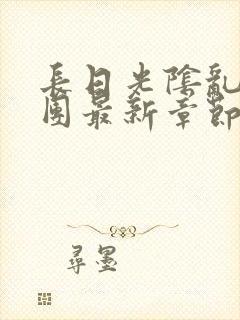 長日光陰亂
團最新章節
尋墨